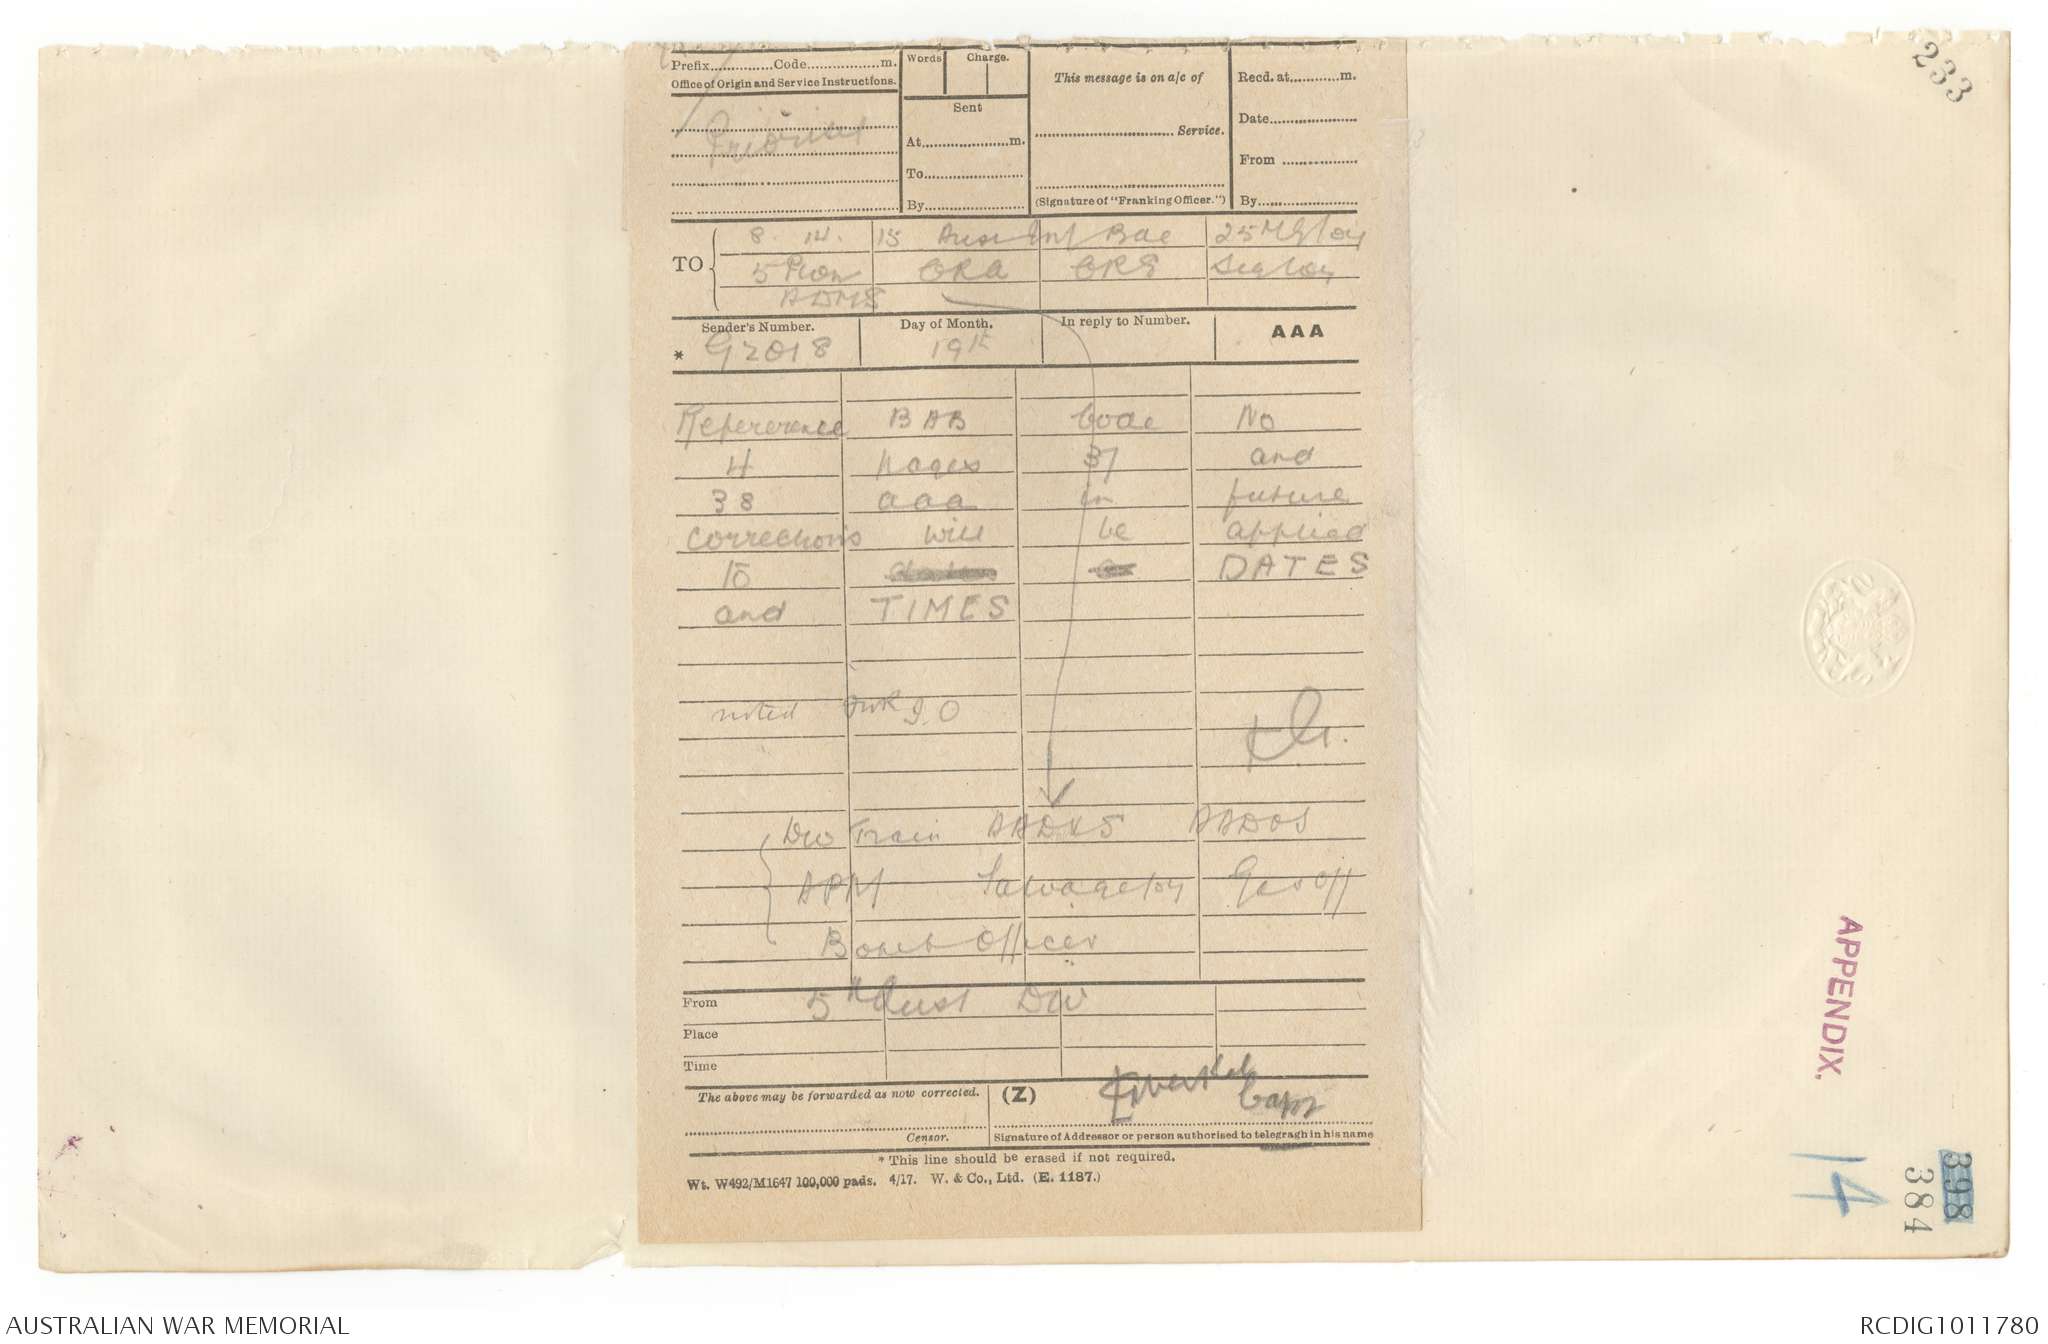 233
Prefix...............Code..................m.
Office of Origin and Service Instructions.
Priority
Words
Charge.
Sent
At.....................m.
To........................
By........................
This message is on a/c of
................................... Service.
(Signature of "Franking Officer.")
Recd. at............m.
Date.....................
From ..................
By........................
TO
8. 14. 15 Aust Inf Bde 25 M G Coy
5 Pion CRA CRE Sig Coy
ADMS
Sender's Number.
* G2018
Day of Month.
19th
In reply to Number.
AAA
Reference BAB Code No
4 pages 37 and
38 aaa in future
corrections will be applied
to DATES
and TIMES
noted I.O
Div Train AADVS AADOS
APM Salvage Coy Gas Off
Bomb Officer
From 5th Aust Div
Place
Time
The above may be forwarded as now corrected.
Censor.
(Z)
Capt
Signature of Addressor or person authorised to telegragh in his name
* This line should be erased if not required.
Wt. W492/M1647 100,000 pads. 4/17. W. & Co., Ltd. (E. 1187.)
APPENDIX.
14
398
384
AUSTRALIAN WAR MEMORIAL
RCDIG1011780